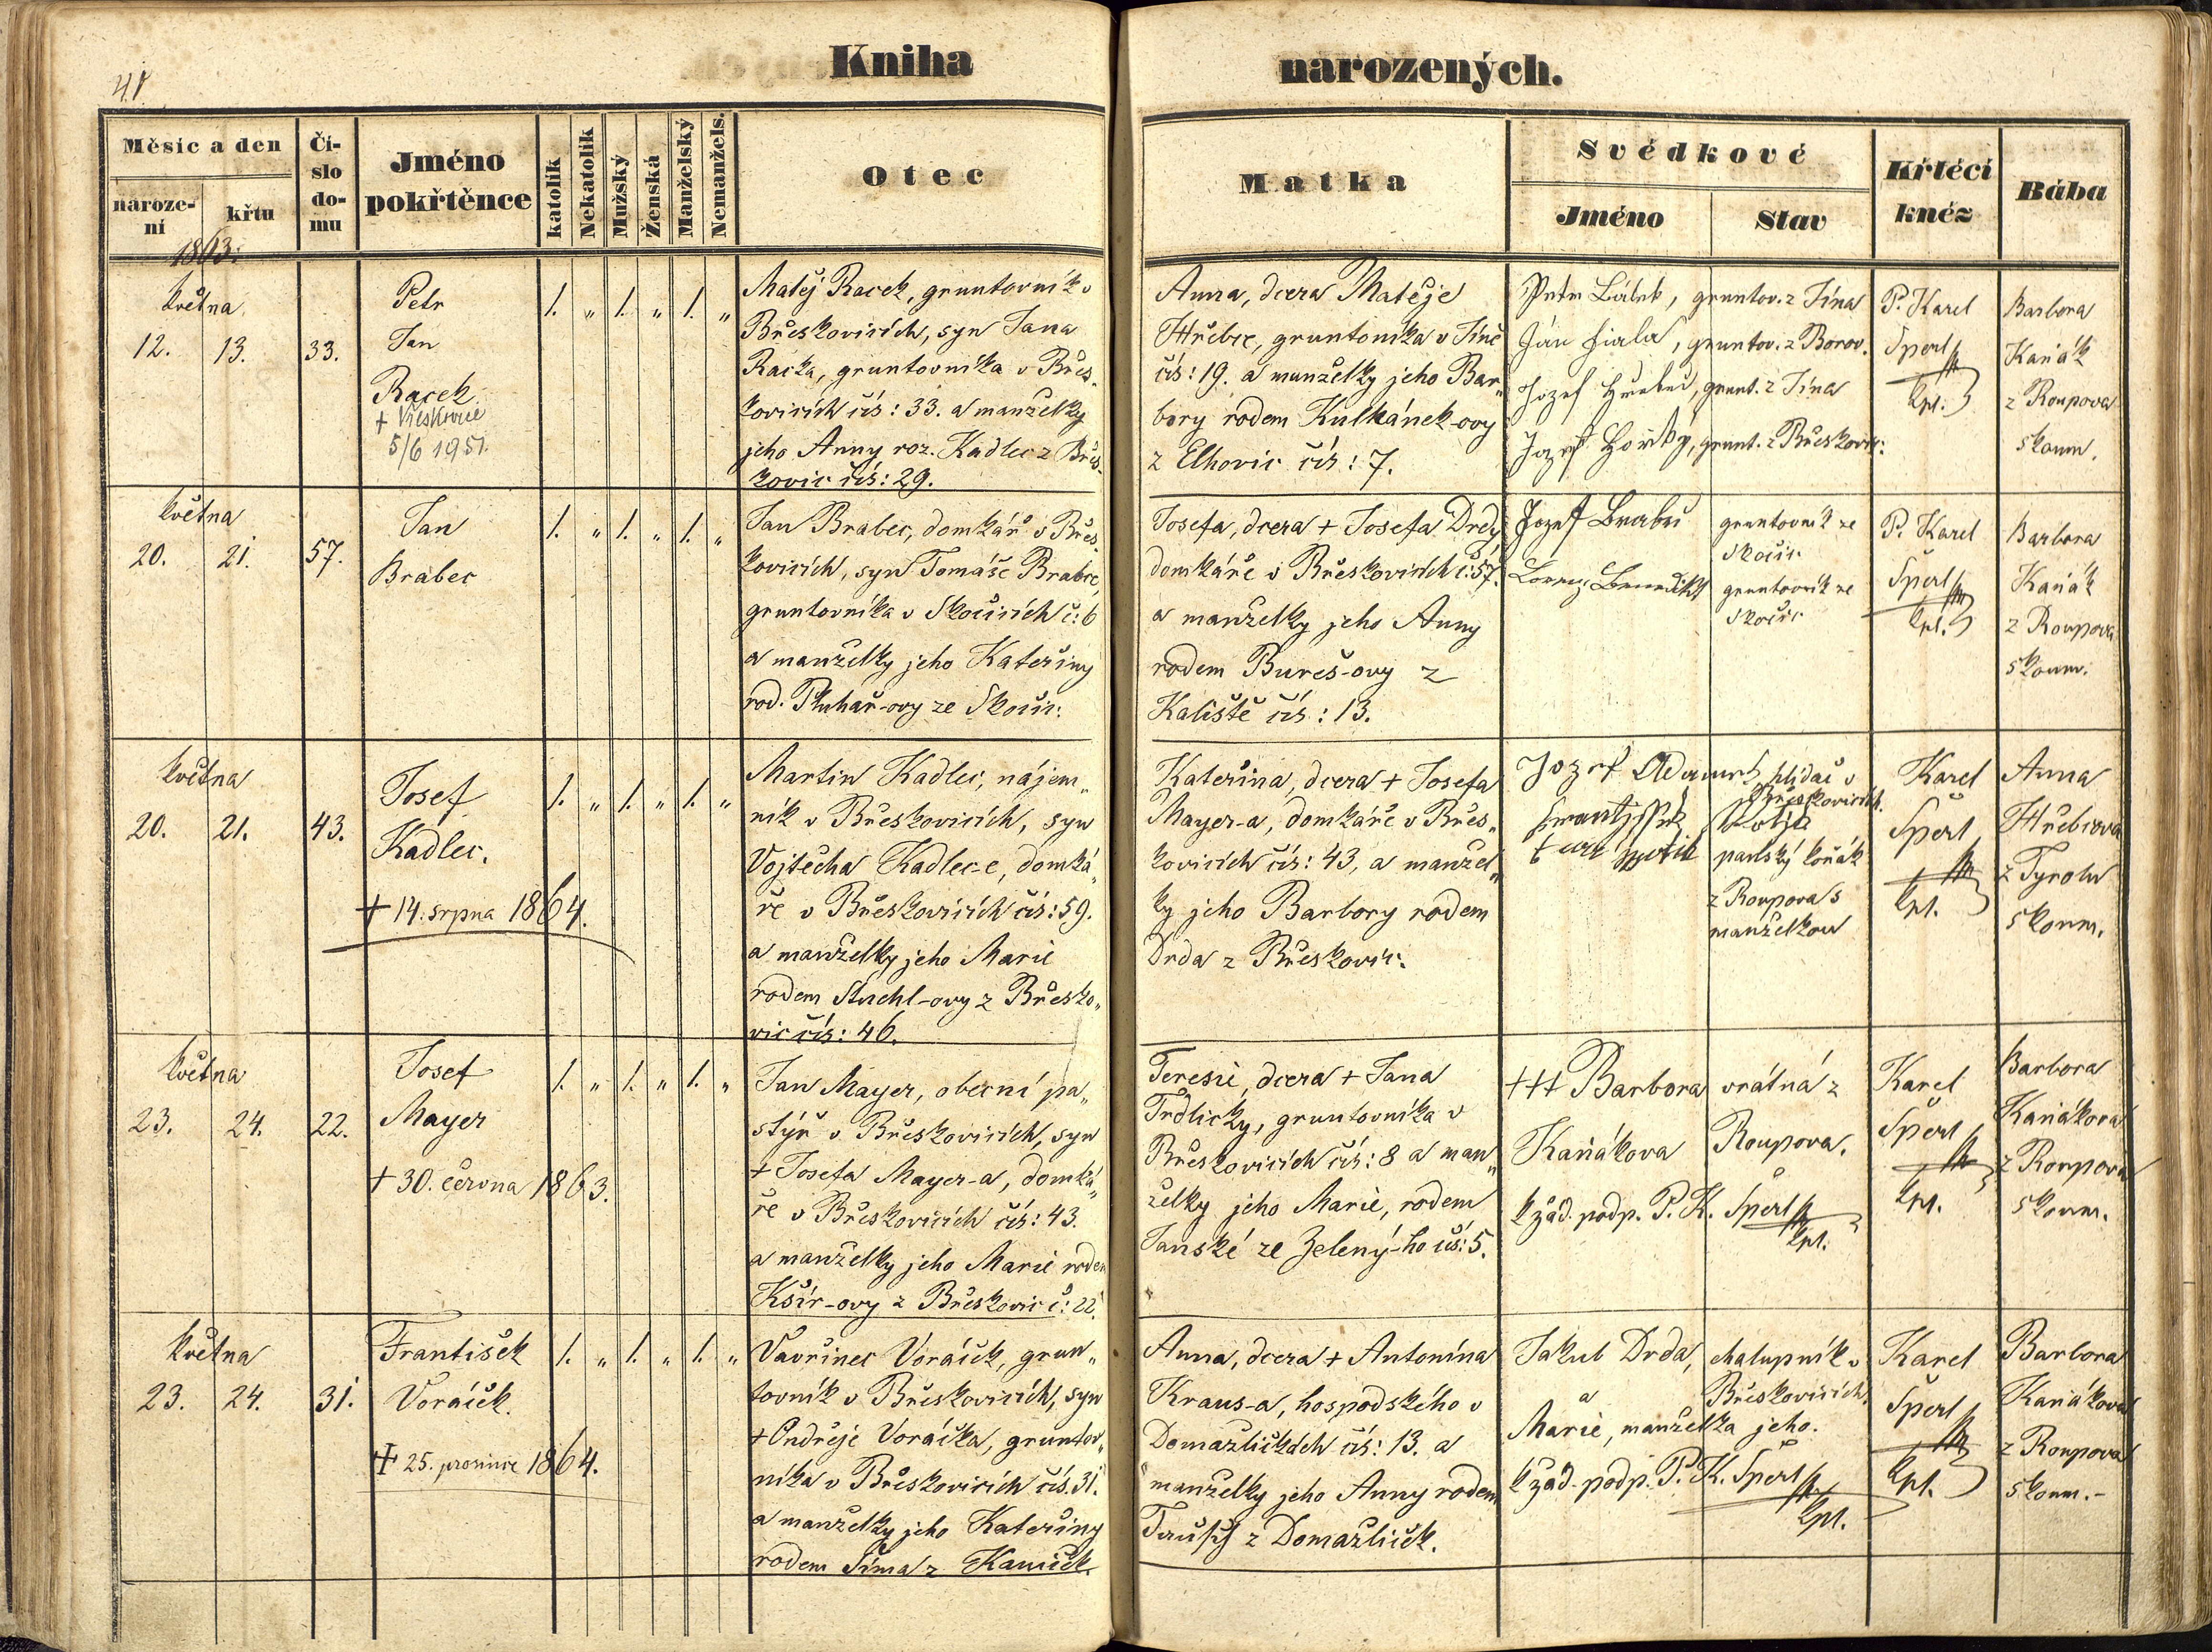 41.
Kniha
narozených.
Měsíc a den
narození
křtu
Číslo domu
Jméno pokřtěnce
katolík
Nekatolík
Mužský
Ženská
Manželský
Nemanžels.
Otec
Matka
Svědkové
Jméno
Stav
Křtěcí kněz
Bába
1863.
května
12. 13. 33.
Petr
Jan
Racek
+ Vřeskovice
5/6 1951.
1. „ 1. „ 1. „
Matěj Racek, gruntovník v
Břeskovicích, syn Jana
Racka, gruntovníka v Břes-
kovicích čís: 33. a manželky
jeho Anny roz. Kadlec z Břes-
kovic čís: 29.
Anna, dcera Matěje
Hřebce, gruntovníka v Jíně
čís: 19. a manželky jeho Bar„
bory rodem Kulhánek-ovy
z Elhovic čís: 7.
gruntov. z Jína
Jan Fiala, gruntov. z Borov.
Jozef, grunt. z Jína
Jozef, grunt. z Břeskovic:
P. Karel
Šperl
kpl.
Barbora
Kaňák
z Roupova
skoum.
května
20. 21. 57.
Jan
Brabec
1. „ 1. „ 1. „
Jan Brabec, domkář v Břes-
kovicích, syn Tomáše Brabce,
gruntovníka v Skočicích č: 6
a manželky jeho Kateřiny
rod. Pluhař-ovy ze Skočic.
Josefa, dcera + Josefa Drdy
domkáře v Břeskovicích č: 57.
a manželky jeho Anny
rodem Bureš-ovy z
Kaliště čís: 13.
Jozef Brabec
gruntovník ze
Skočic
Lorenz Benedikt
gruntovník ze
Skočic
P. Karel
Šperl
kpl.
Barbora
Kaňák
z Roupova
skoum.
května
20. 21. 43.
Josef
Kadlec.
+ 14. srpna 1864.
1. „ 1. „ 1. „
Martin Kadlec, nájem„
ník v Břeskovicích, syn
Vojtěcha Kadlec-e, domká„
ře v Břeskovicích čís: 59.
a manželky jeho Marie
rodem Stuchl-ovy z Břesko„
vic čís: 46.
Kateřina, dcera + Josefa
Mayer-a, domkáře v Břes„
kovicích čís: 43, a manžel„
ky jeho Barbory rodem
Drda z Břeskovic.
Jozef Adamek, hlídač v
Břeskovicích.
panský koňák
z Roupova s
manželkou
Karel
Šperl
kpl.
Anna
Hřebcova
z Tyrolu
skoum.
května
23. 24. 22.
Josef
Mayer
+ 30. června 1863.
1. „ 1. „ 1. „
Jan Mayer, obecní pa„
stýř v Břeskovicích, syn
+ Josefa Mayer-a, domká„
ře v Břeskovicích čís: 43.
a manželky jeho Marie rodem
Kšír-ovy z Břeskovic č: 22.
Teresie, dcera + Jana
Trdličky, gruntovníka v
Břeskovicích čís: 8 a man„
želky jeho Marie, rodem
Janské ze Zelený-ho čís: 5.
+++ Barbora
Kaňákova
vrátná z
Roupova.
k žád. podp. P. K. Šperl
kpl.
Karel
Šperl
kpl.
Barbora
Kaňákova
z Roupova
skoum.
května
23. 24. 31.
František
Voráček.
+ 25. prosince 1864.
1. „ 1. „ 1. „
Vavřinec Voráček, grun„
tovník v Břeskovicích, syn
+ Ondřeje Voráčka, gruntov„
níka v Břeskovicích čís. 31.
a manželky jeho Kateřiny
rodem Šíma z Kamíček.
Anna, dcera + Antonína
Kraus-a, hospodského v
Domažličkách čís: 13. a
manželky jeho Anny rodem
z Domažliček.
Jakub Drda, chalupník v
Břeskovicích,
a
Marie, manželka jeho.
k žád. podp. P. K. Šperl
kpl.
Karel
Šperl
kpl.
Barbora
Kaňákova
z Roupova
skoum.-